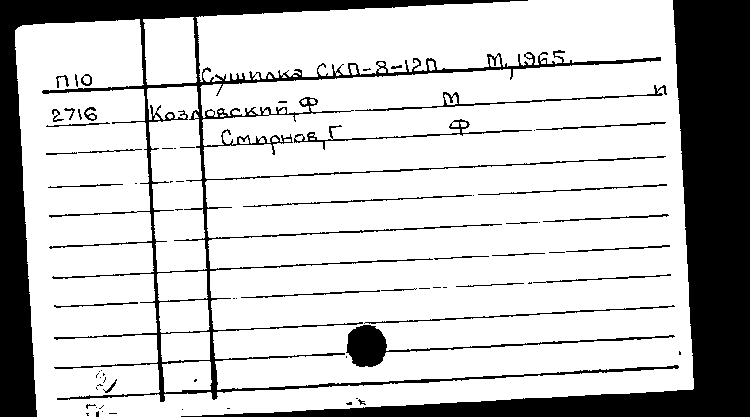 П10 Сушилка СКП-8-12П. М, 1965.
2716 Козловский, Ф М и
Смирнов, Г Ф
2